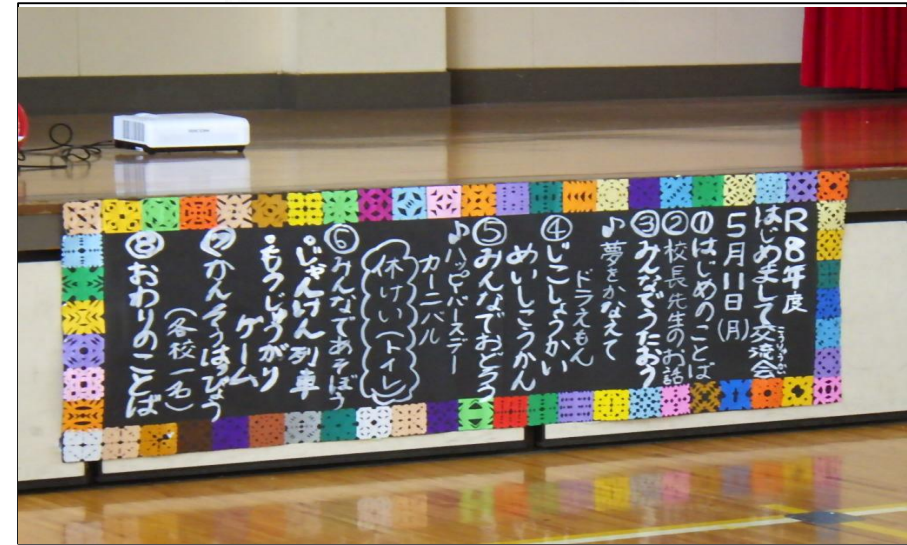 R8年度
はじめまして交流会
こうりゅうかい
5月11日(月)
①はじめのことば
②校長先生のお話
③みんなでうたおう
♪夢をかなえて
ドラえもん
④じこしょうかい
めいしこうかん
⑤みんなでおどろう
♪ハッピーバースデー
カーニバル
休けい(トイレ)
⑥みんなであそぼう
・じゃんけん列車
・もうじゅうがり
ゲーム
⑦かんそうはっぴょう
(各校一名)
⑧おわりのことば